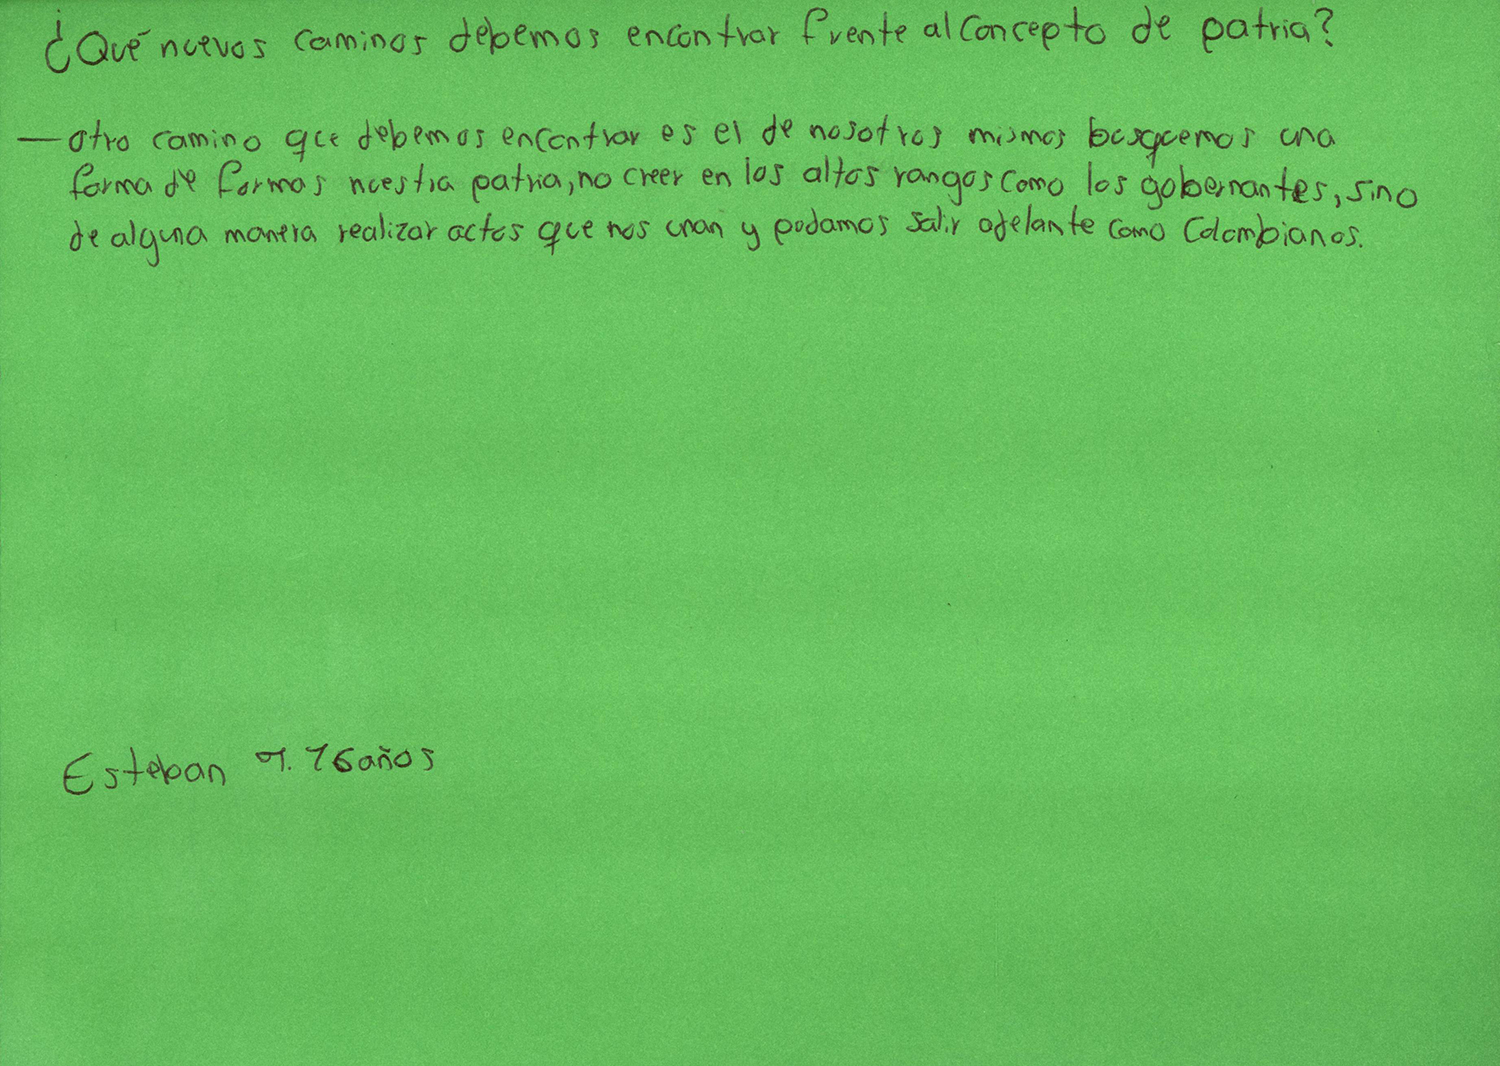 ¿Qué nuevos caminos debemos encontrar frente al concepto de patria?
— otro camino que debemos encontrar es el de nosotros mismos busquemos una
forma de formas nuestra patria, no creer en los altos rangos como los gobernantes, sino
de alguna manera realizar actos que nos unan y podamos salir adelante como Colombianos.
Esteban 16 años